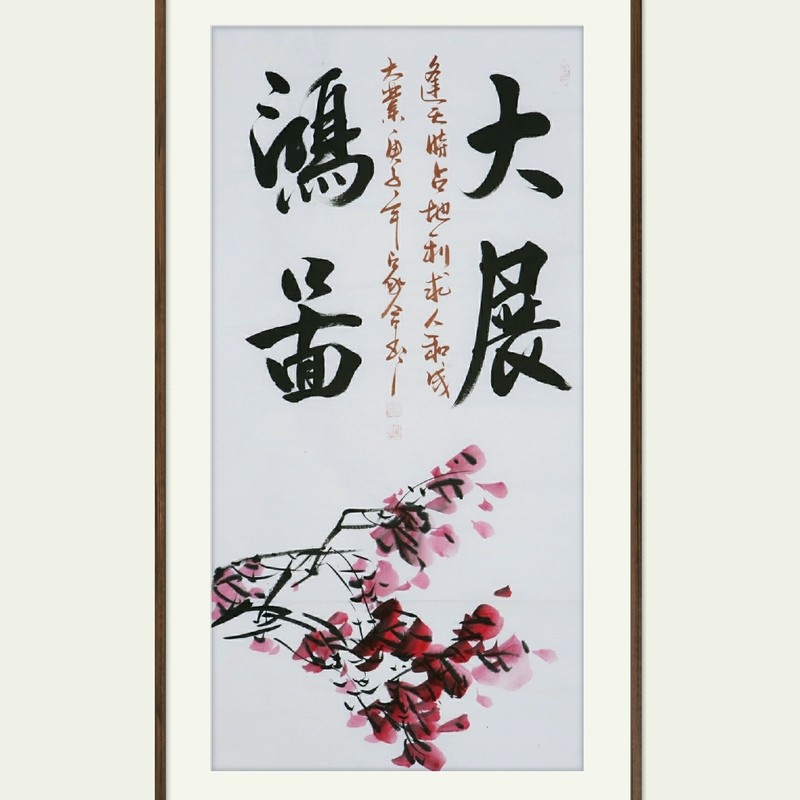 大展
鴻圖
逢天時占地利求人和成
大業庚子年